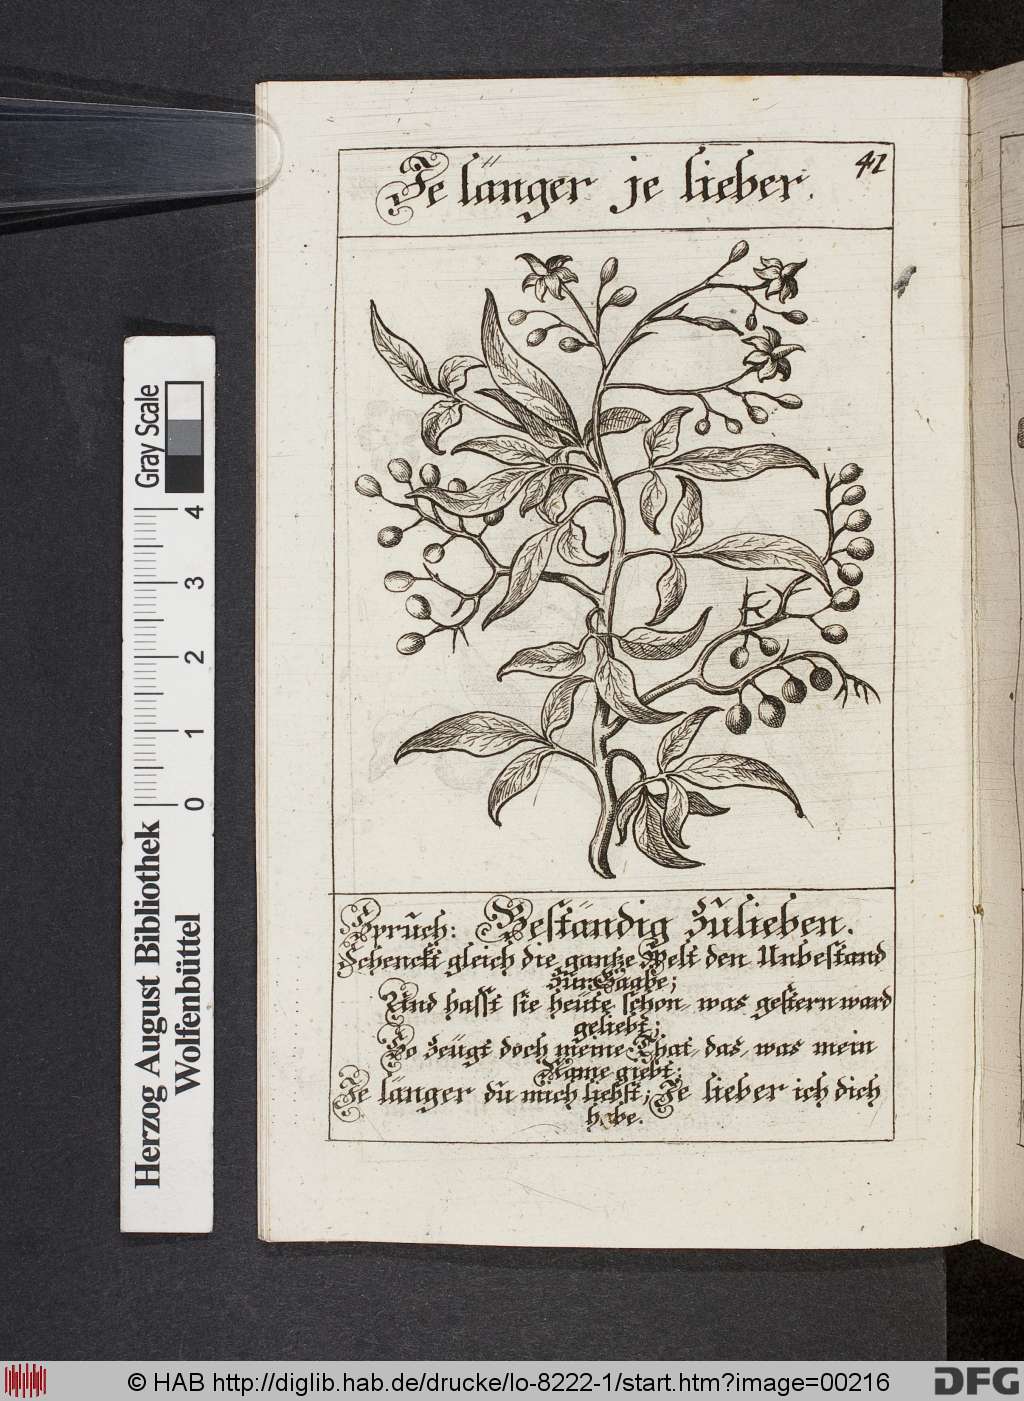 Je länger je lieber.
41
Spruch: Beständig Zulieben.
Schenckt gleich die gantze Welt den Unbestand
Zur Gaabe;
Und hasst sie heüte schon, was gestern ward
geliebt;
So Zeügt doch meine That, das, was mein
Name giebt:
Je länger du mich liebst; Je lieber ich dich
habe.
Herzog August Bibliothek
Wolfenbüttel
0 1 2 3 4
Gray Scale
© HAB http://diglib.hab.de/drucke/lo-8222-1/start.htm?image=00216
DFG